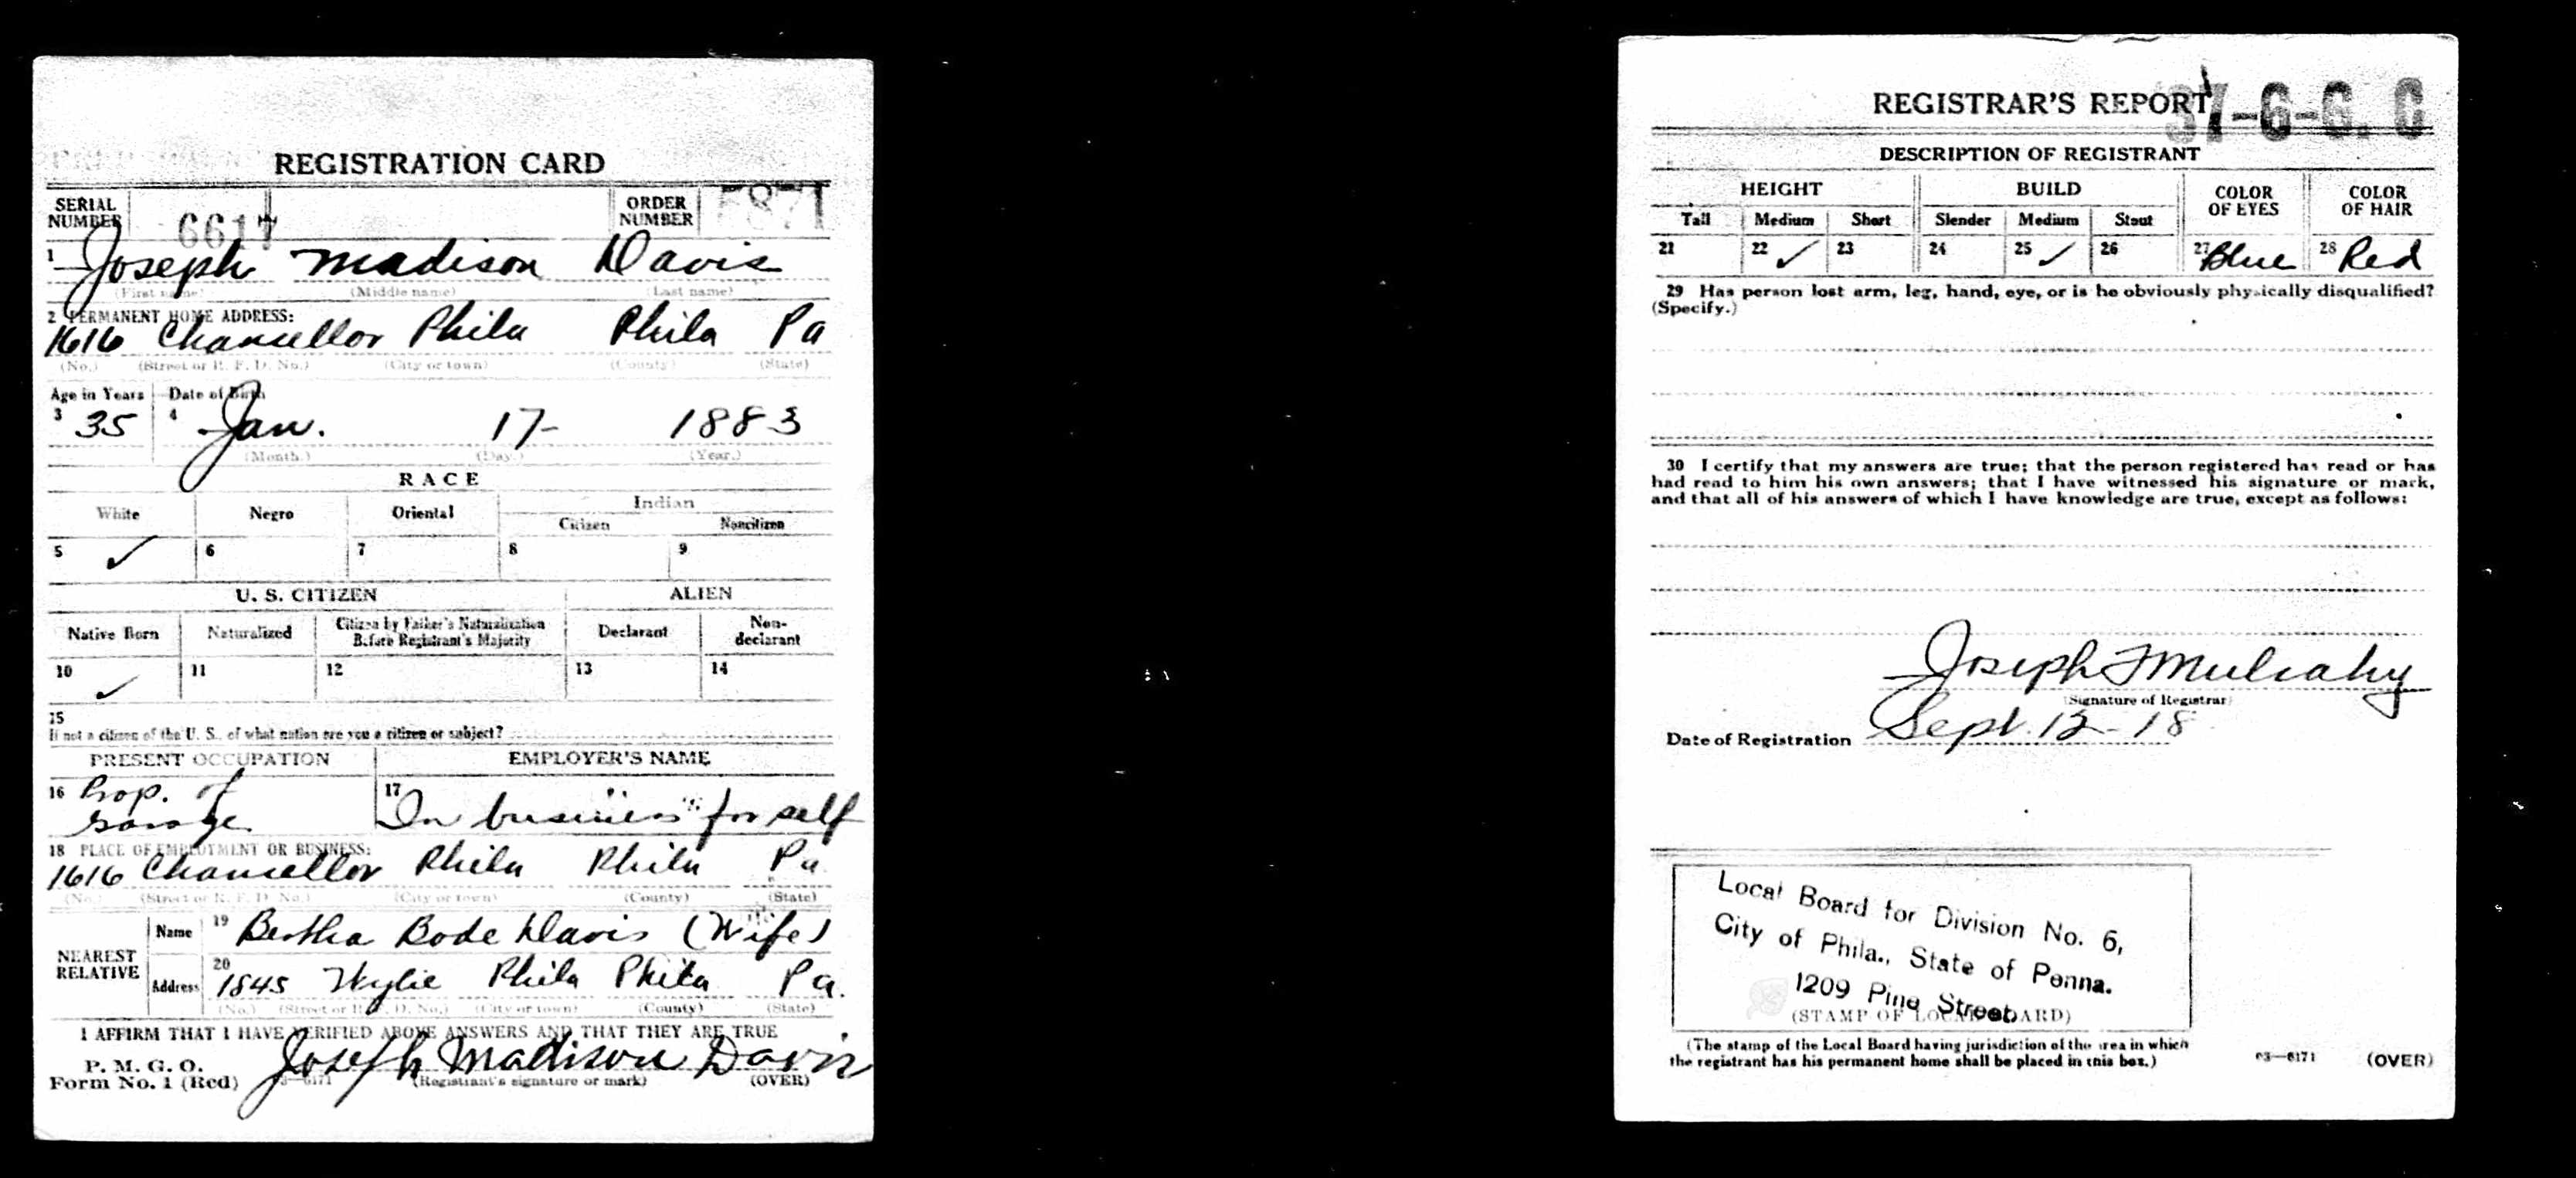 REGISTRATION CARD
SERIAL NUMBER 6617 ORDER NUMBER 5871
1 Joseph Madison Davis
(First name) (Middle name) (Last name)
2 PERMANENT HOME ADDRESS:
1616 Chancellor Phila Phila Pa
(No.) (Street or R. F. D. No.) (City or town) (County) (State)
Age in Years Date of Birth
3 35 4 Jan. 17- 1883
(Month.) (Day.) (Year.)
RACE
White Negro Oriental Indian
Citizen Noncitizen
5 ✓ 6 7 8 9
U. S. CITIZEN ALIEN
Native Born Naturalized Citizen by Father's Naturalization Before Registrant's Majority Declarant Non-declarant
10 ✓ 11 12 13 14
15
If not a citizen of the U. S., of what nation are you a citizen or subject?
PRESENT OCCUPATION EMPLOYER'S NAME
16 Prop. of 17
Garage In business for self
18 PLACE OF EMPLOYMENT OR BUSINESS:
1616 Chancellor Phila Phila Pa
(No.) (Street or R. F. D. No.) (City or town) (County) (State)
NEAREST RELATIVE
Name 19 Bertha Bode Davis (Wife)
Address 20 1845 Wylie Phila Phila Pa.
(No.) (Street or R. F. D. No.) (City or town) (County) (State)
I AFFIRM THAT I HAVE VERIFIED ABOVE ANSWERS AND THAT THEY ARE TRUE
P. M. G. O.
Form No. 1 (Red) Joseph Madison Davis
3—6171 (Registrant's signature or mark) (OVER)
REGISTRAR'S REPORT 37-6-6. C
DESCRIPTION OF REGISTRANT
HEIGHT BUILD COLOR OF EYES COLOR OF HAIR
Tall Medium Short Slender Medium Stout
21 22 ✓ 23 24 25 ✓ 26 27 Blue 28 Red
29 Has person lost arm, leg, hand, eye, or is he obviously physically disqualified?
(Specify.)
30 I certify that my answers are true; that the person registered has read or has
had read to him his own answers; that I have witnessed his signature or mark,
and that all of his answers of which I have knowledge are true, except as follows:
Joseph F Mulcahy
(Signature of Registrar)
Date of Registration Sept. 12-18
Local Board for Division No. 6,
City of Phila., State of Penna.
1209 Pine Street
(STAMP OF LOCAL BOARD)
(The stamp of the Local Board having jurisdiction of the area in which
the registrant has his permanent home shall be placed in this box.)
03—6171 (OVER)